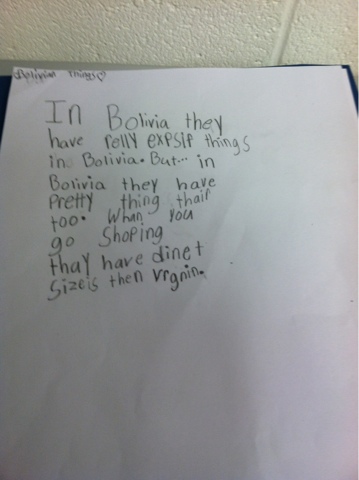 Bolivian things♡
In Bolivia they
have relly expsif things
in Bolivia. But... in
Bolivia they have
Pretty thing thair
too. Whan you
go Shoping
thay have dinet
Sizeis then vrgnin.